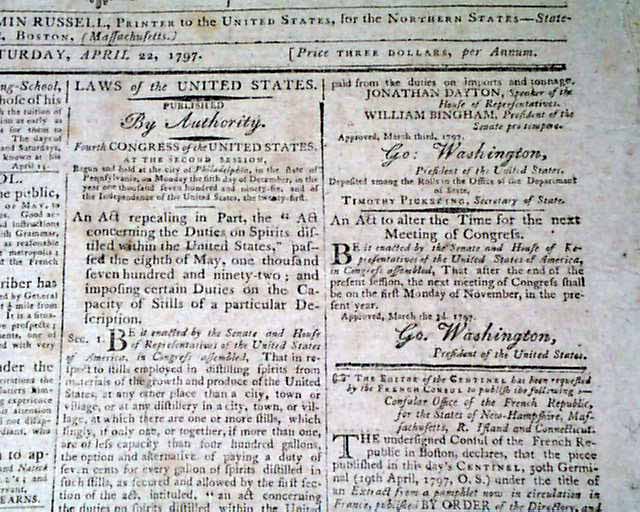 MIN RUSSELL, PRINTER to the UNITED STATES, for the NORTHERN STATES—State-
BOSTON, (Massachusetts.)
TURDAY, APRIL 22, 1797.
[Price THREE DOLLARS, per Annum.
ng-School,
hose of his
the tuition of
on as early as
for them to
The days of
and Saturdays,
known at his
April 15.
OL.
he public,
of MAY, is
Good ac-
nd instructions
with Grammar,
as reasonable
metropolis;
of the French
riber has
ed by General
1/2 mile from
It is a situa-
ve prospects;
ments, one of
ed with very
nder the
corations the
have experience
his attention
not disap-
dians, who
n to ap-
and Nated
EARNS.
LAWS of the UNITED STATES.
PUBLISHED
By Authority.
Fourth CONGRESS of the UNITED STATES.
AT THE SECOND SESSION,
Begun and held at the city of Philadelphia, in the state of
Pennsylvania, on Monday the fifth day of December, in the
year one thousand seven hundred and ninety-six, and of
the Independence of the United States, the twenty-first.
An Act repealing in Part, the "Act
concerning the Duties on Spirits dis-
tilled within the United States," pas-
sed the eighth of May, one thousand
seven hundred and ninety-two; and
imposing certain Duties on the Ca-
pacity of Stills of a particular De-
scription.
Sec. 1. BE it enacted by the Senate and House
of Representatives of the United States
of America, in Congress assembled, That in re-
spect to stills employed in distilling spirits from
materials of the growth and produce of the United
States, at any other place than a city, town or
village, or at any distillery in a city, town, or vil-
lage, at which there are one or more stills, which
singly, if only one, or together, if more than one,
are of less capacity than four hundred gallons,
the option and alternative of paying a duty of
seven cents for every gallon of spirits distilled in
such stills, as secured and allowed by the first sec-
tion of the act, intituled, "an act concerning
the duties on spirits distilled within the United
paid from the duties on imports and tonnage.
JONATHAN DAYTON, Speaker of the
House of Representatives.
WILLIAM BINGHAM, President of the
Senate pro tempore.
Approved, March third, 1797.
Go: Washington,
President of the United States.
Deposited among the Rolls in the Office of the Department
of State,
TIMOTHY PICKERING, Secretary of State.
An Act to alter the Time for the next
Meeting of Congress.
BE it enacted by the Senate and House of Re-
presentatives of the United States of America,
in Congress assembled, That after the end of the
present session, the next meeting of Congress shall
be on the first Monday of November, in the pre-
sent year.
Approved, March the 3d. 1797.
Go. Washington,
President of the United States.
☞ THE EDITOR of the CENTINEL has been requested
by the FRENCH CONSUL to publish the following:—
Consular Office of the French Republic,
for the States of New-Hampshire, Mas-
sachusetts, R. Island and Connecticut.
THE undersigned Consul of the French Re-
public in Boston, declares, that the piece
published in this day's CENTINEL, 30th Germi-
nal (19th April, 1797, O. S.) under the title of
an Extract from a pamphlet now in circulation in
France, published BY ORDER of the Directory, and